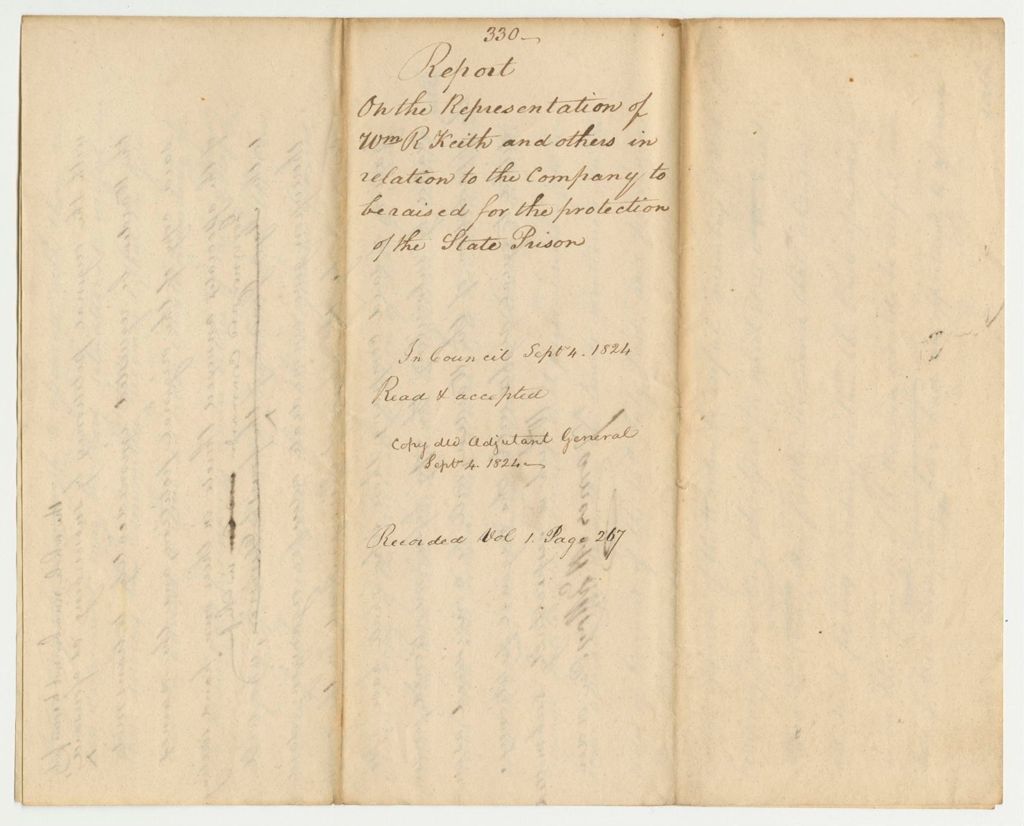 330
Report
On the Representation of
Wm R Keith and others in
relation to the Company to
be raised for the protection
of the State Prison
In Council Sept 4. 1824
Read & accepted
Copy dld Adjutant General
Sept 4. 1824
Recorded Vol 1. Page 267